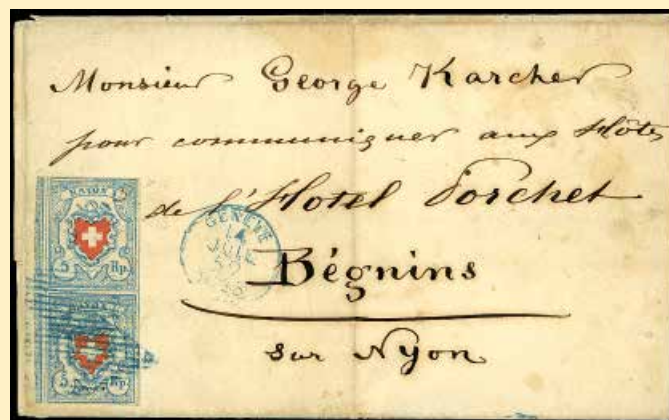 Monsieur George Karcher
pour communiquer aux Hôtes
de l'Hotel Porchet
Bégnins
sur Nyon
RAYON
5 Rp.
RAYON
5 Rp.
GENÈVE
14